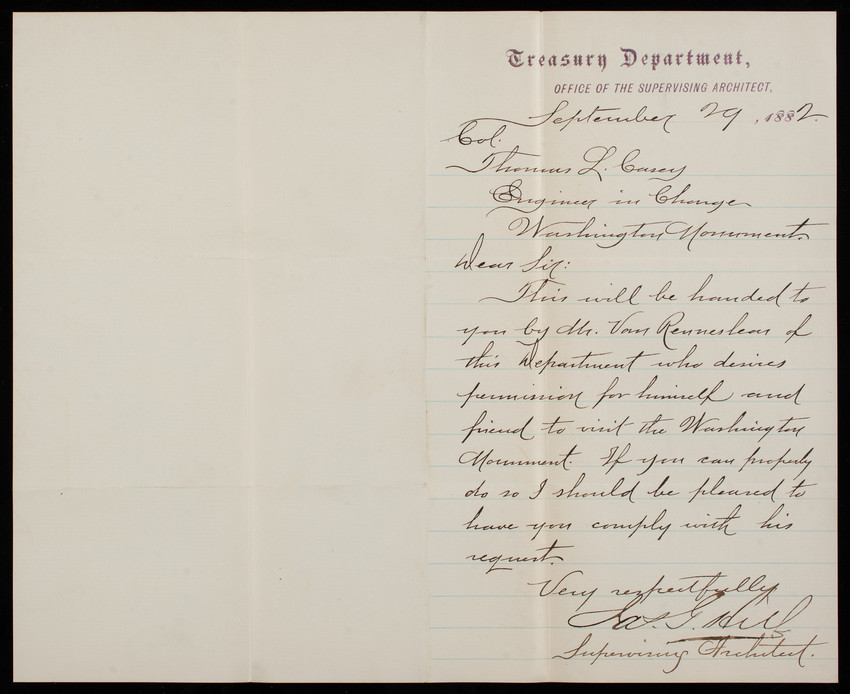 Treasury Department,
OFFICE OF THE SUPERVISING ARCHITECT,
September 29, 1882.
Col.
Thomas L. Casey
Engineer in Charge
Washington Monument.
Dear Sir:
This will be handed to
you by Mr. Van Renneslear of
this Department who desires
permission for himself and
friend to visit the Washington
Monument. If you can properly
do so I should be pleased to
have you comply with his
request.
Very respectfully
Jas. G. Hill
Supervising Architect.